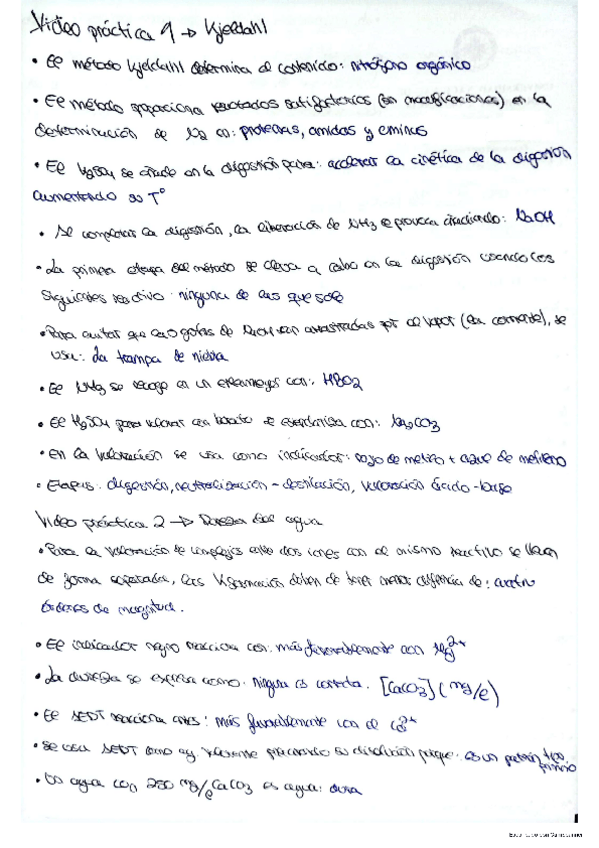 Video práctica 1 → Kjeldahl
• El método Kjeldahl determina el contenido: nitrógeno orgánico
• El método proporciona resultados satisfactorios (sin modificaciones) en la
determinación de N2 en: proteínas, amidas y aminas
• El K2SO4 se añade en la digestión para: acelerar la cinética de la digestión
aumentando su Tº
• Al completar la digestión, la liberación de NH3 se provoca añadiendo: NaOH
• La primera etapa del método se lleva a cabo en la digestión usando los
siguientes reactivo: ninguna de las que sale
• Para evitar que las gotas de NaOH sean arrastradas por el vapor (la corriente), se
usa: La trampa de niebla
• El NH3 se recoge en un erlenmeyer con: HBO2
• El H2SO4 para valorar con borato se estandariza con: Na2CO3
• En la valoración se usa como indicador: rojo de metilo + azul de metileno
• Etapas: digestión, neutralización - destilación, valoración ácido-base
Video práctica 2 → Dureza del agua
• Para la valoración de complejos entre dos iones con el mismo reactivo se lleven
de forma separada, las Kformación deben de tener menor diferencia de: cuatro
órdenes de magnitud.
• El indicador negro reacciona con: más favorablemente con Mg2+
• La dureza se expresa como: ninguna es correcta. [CaCO3] (mg/l)
• El AEDT reacciona antes: más favorablemente con el Ca2+
• Se usa AEDT como agente valorante preparando su disolución porque: es un patrón tipo
primario
• Un agua con 250 mg/l CaCO3 es agua: dura